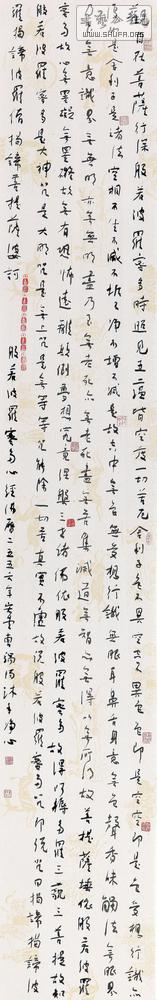 觀自在菩薩行深般若波羅蜜多時照見五蘊皆空度一切苦厄舍利子色不異空空不異色色即是空空即是色受想行識亦
復如是舍利子是諸法空相不生不滅不垢不淨不增不減是故空中無色無受想行識無眼耳鼻舌身意無色聲香味觸法無眼界
乃至無意識界無無明亦無無明盡乃至無老死亦無老死盡無苦集滅道無智亦無得以無所得故菩提薩埵依般若波羅
蜜多故心無罣礙無罣礙故無有恐怖遠離顛倒夢想究竟涅槃三世諸佛依般若波羅蜜多故得阿耨多羅三藐三菩提故知
般若波羅蜜多是大神咒是大明咒是無上咒是無等等咒能除一切苦真實不虛故說般若波羅蜜多咒即說咒曰揭諦揭諦波
羅揭諦波羅僧揭諦菩提薩婆訶 般若波羅蜜多心經佛曆二五五六年 沐手淨心
www.SHUFA.ORG